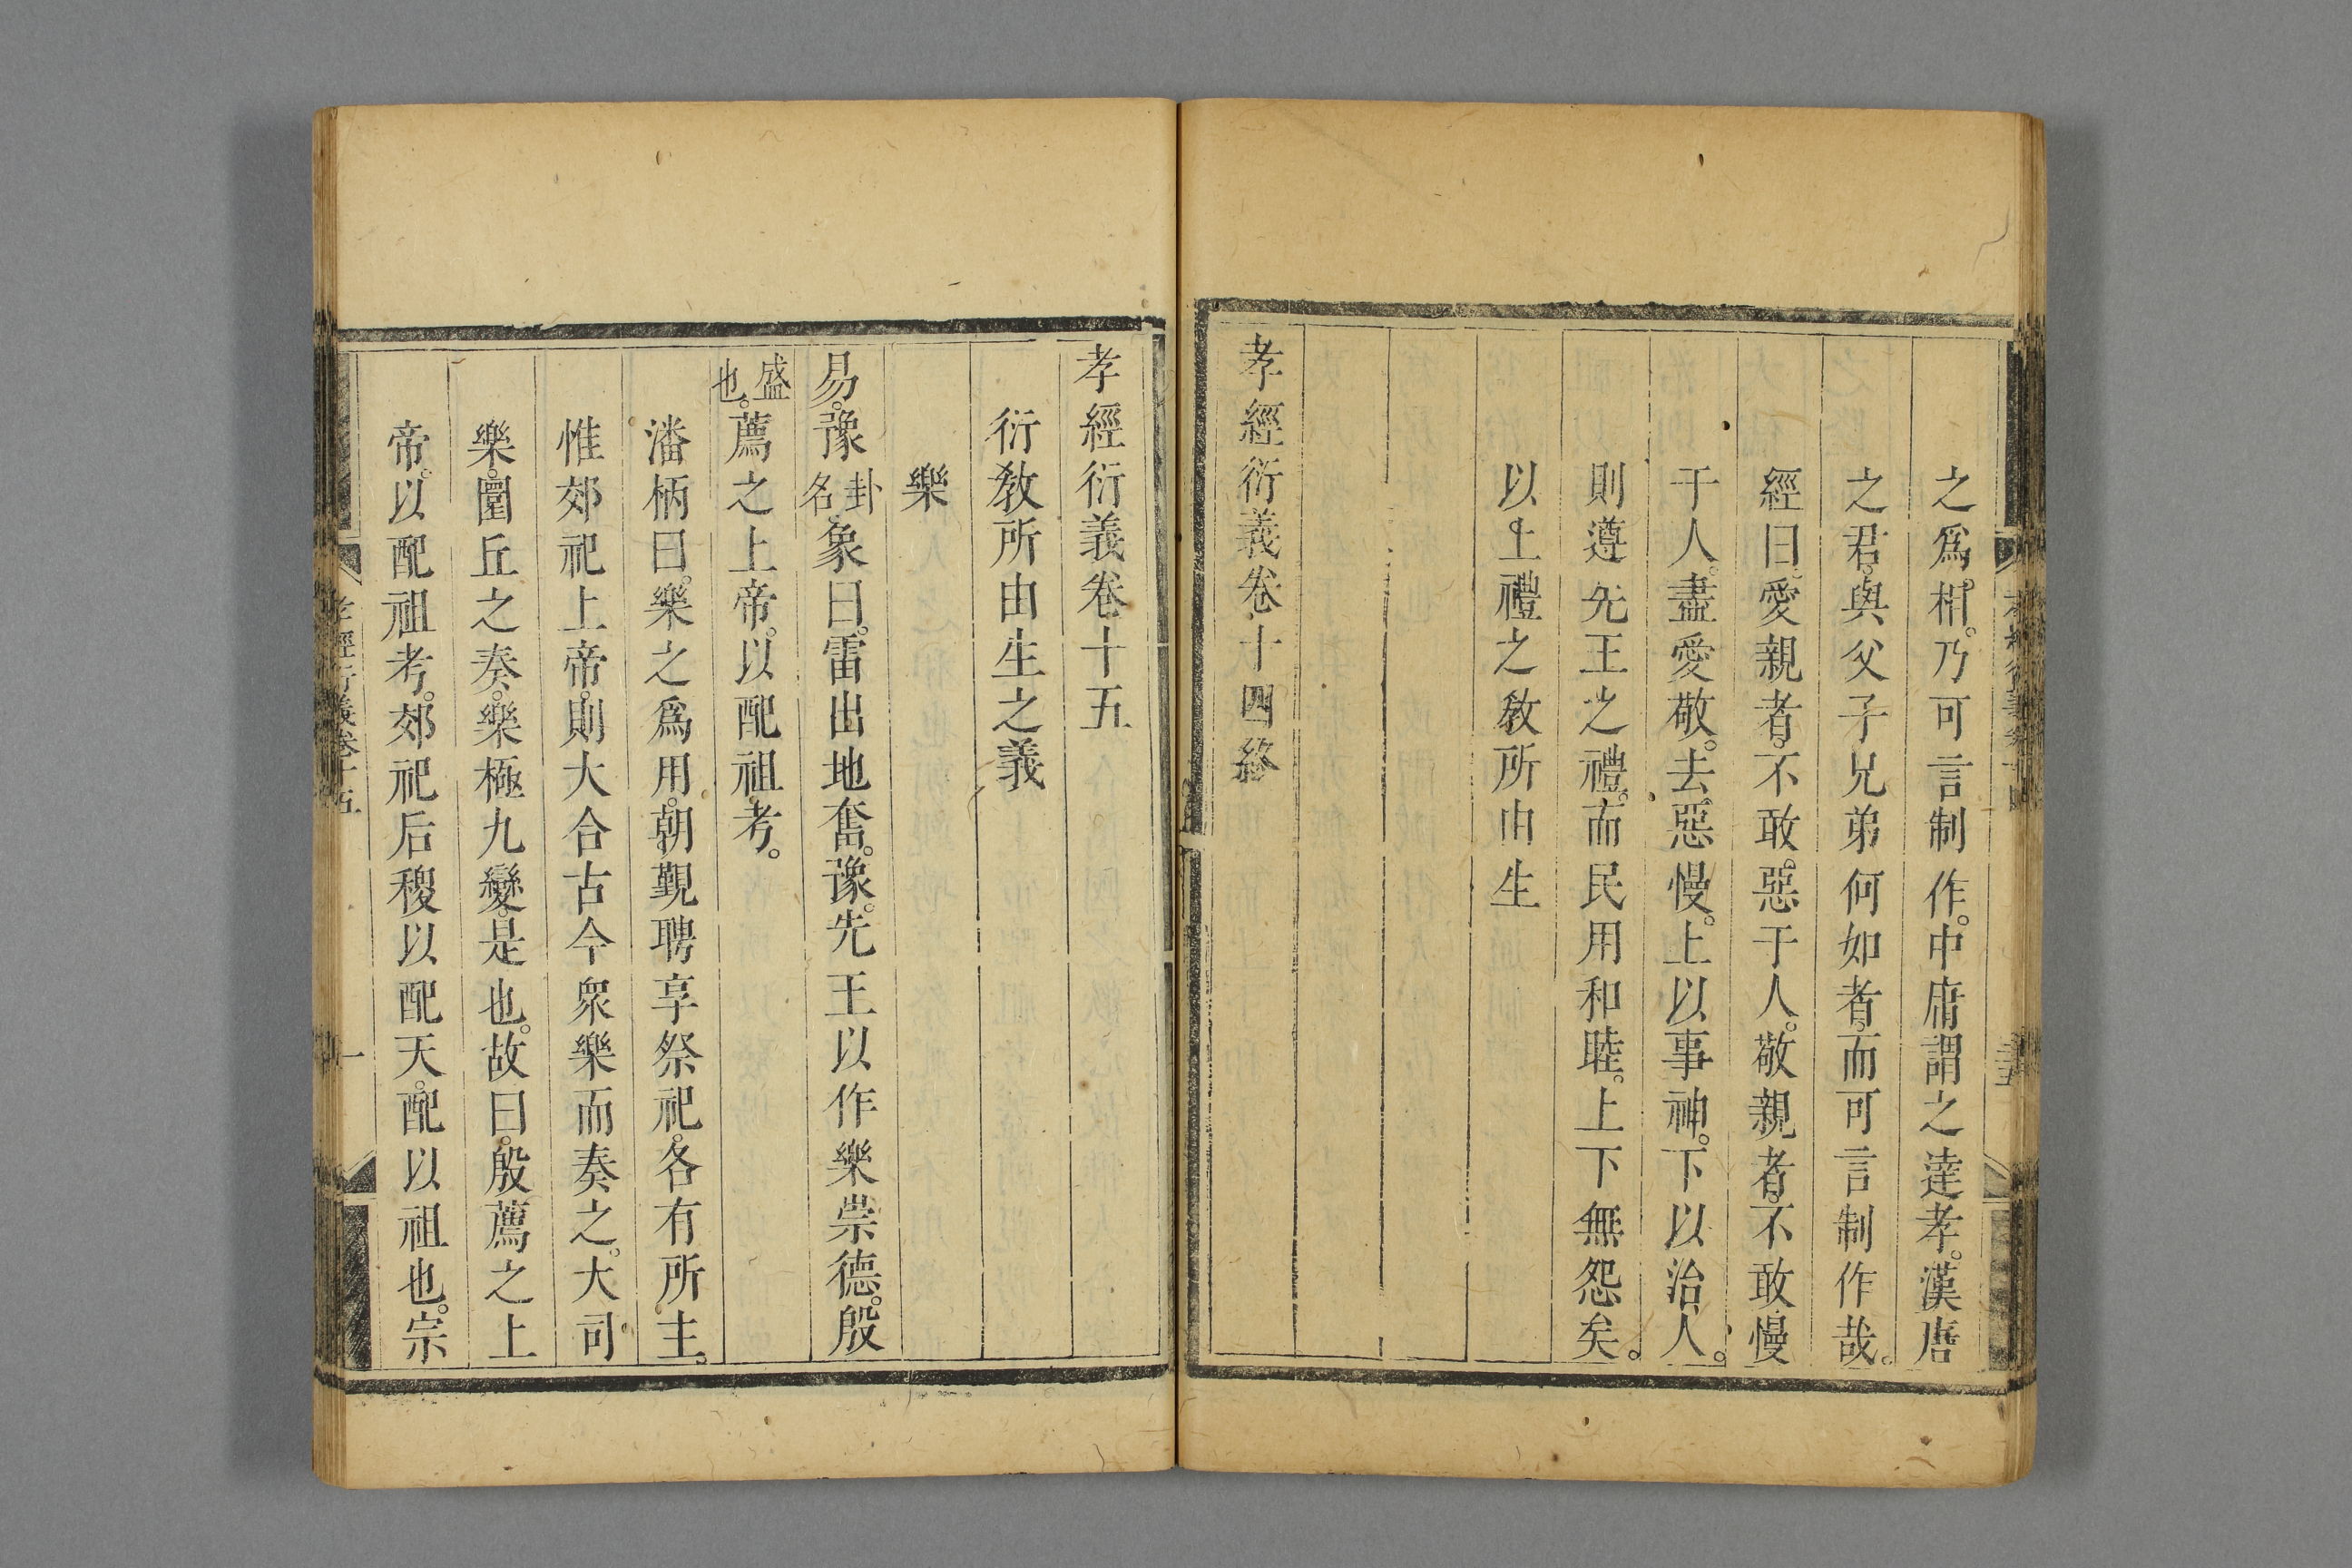 之爲相。乃可言制作。中庸謂之達孝。漢唐
之君。與父子兄弟何如者。而可言制作哉。
經曰。愛親者。不敢惡于人。敬親者。不敢慢
于人。盡愛敬。去惡慢。上以事神。下以治人。
則遵先王之禮。而民用和睦。上下無怨矣。
以上禮之敎所由生
孝經衍義卷十四終
孝經衍義卷十五
衍敎所由生之義
樂
易。豫卦名。象曰。雷出地奮。豫。先王以作樂崇德。殷
盛也。薦之上帝。以配祖考。
潘柄曰。樂之爲用。朝覲聘享祭祀。各有所主。
惟郊祀上帝。則大合古今衆樂而奏之。大司
樂。圜丘之奏。樂極九變。是也。故曰。殷薦之上
帝。以配祖考。郊祀后稷以配天。配以祖也。宗
孝經衍義卷十五
一